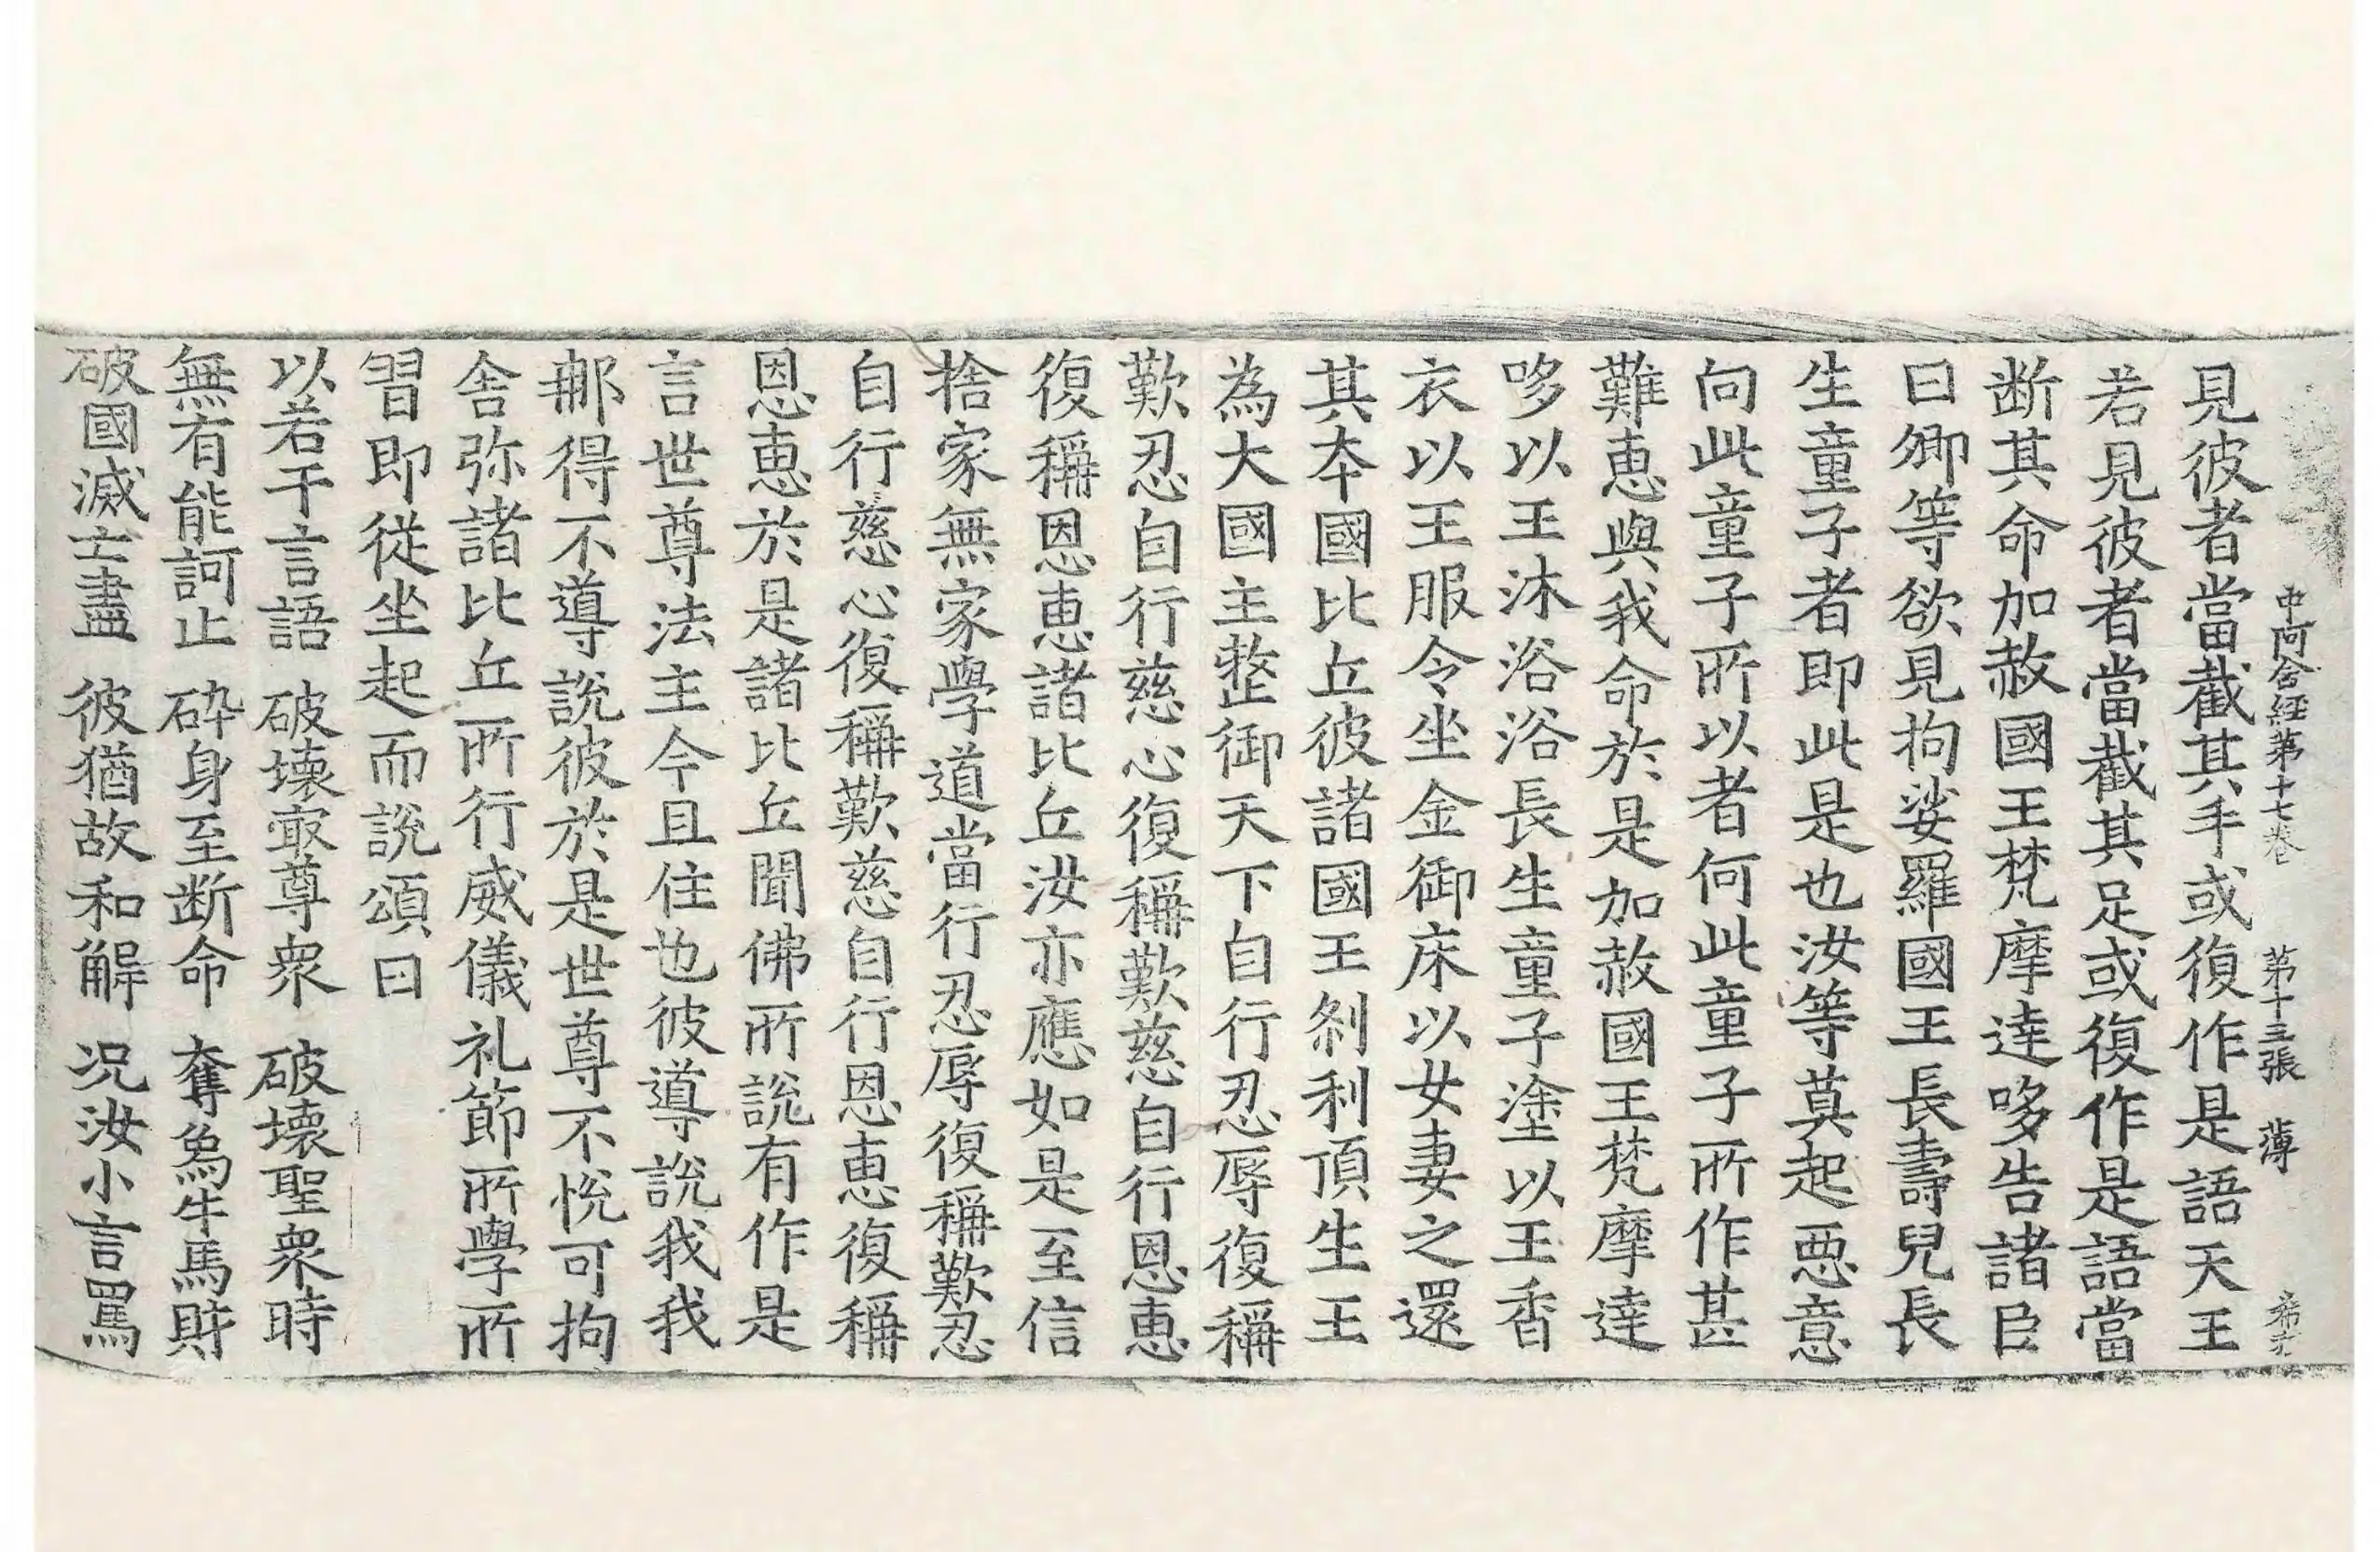 中阿含經第十七卷 第十三張 薄
見彼者當截其手或復作是語天王
若見彼者當截其足或復作是語當
断其命加赦國王梵摩達哆告諸臣
曰卿等欲見拘娑羅國王長壽兒長
生童子者即此是也汝等莫起惡意
向此童子所以者何此童子所作甚
難恵與我命於是加赦國王梵摩達
哆以王沐浴浴長生童子塗以王香
衣以王服令坐金御床以女妻之還
其本國比丘彼諸國王剎利頂生王
為大國主整御天下自行忍辱復稱
歎忍自行慈心復稱歎慈自行恩恵
復稱恩恵諸比丘汝亦應如是至信
捨家無家學道當行忍辱復稱歎忍
自行慈心復稱歎慈自行恩恵復稱
恩恵於是諸比丘聞佛所說有作是
言世尊法主今且住也彼導說我我
那得不導說彼於是世尊不悅可拘
舍弥諸比丘所行威儀礼節所學所
習即從坐起而說頌曰
以若干言語 破壞最尊衆 破壞聖衆時
無有能訶止 碎身至断命 奪象牛馬財
破國滅亡盡 彼猶故和解 况汝小言罵